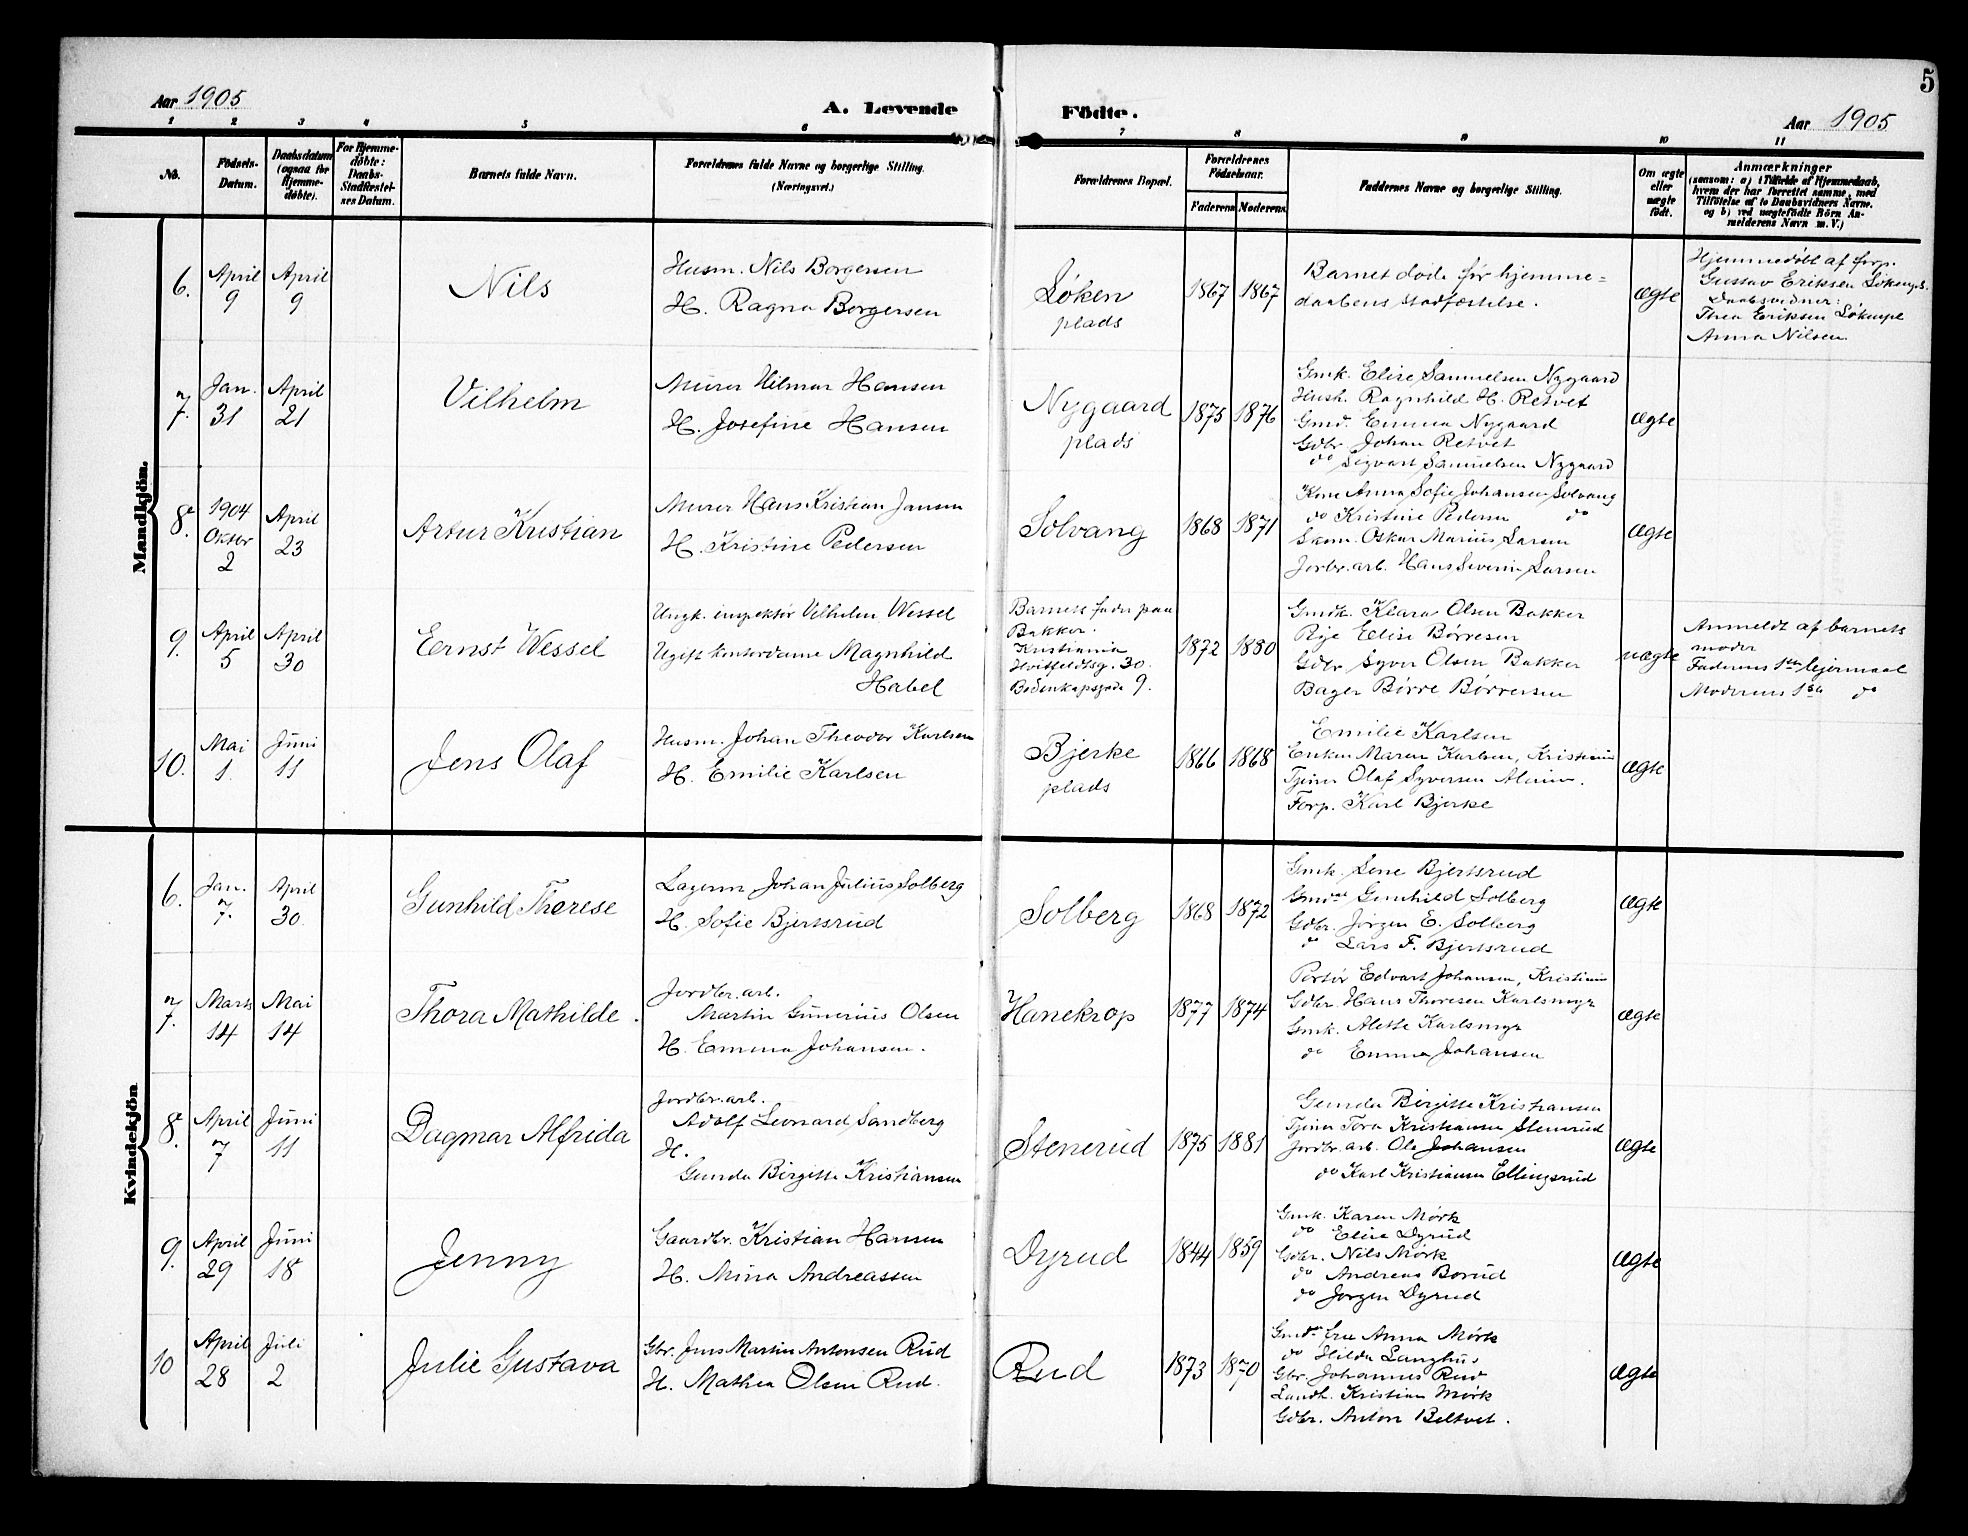 5
Aar 1905
A. Levende
Födte.
Aar 1905
1 2 3 4 5 6 7 8 9 10 11
No.
Födsels-
Datum.
Daabsdatum
(ogsaa for
Hjemme-
døbte).
For Hjemme-
døbte:
Daabs-
Stadfæstel-
ses Datum.
Barnets fulde Navn.
Forældrenes fulde Navne og borgerlige Stilling.
(Næringsvei.)
Forældrenes Bopæl.
Forældrenes
Födselsaar.
Faderens Moderens
Faddernes Navne og borgerlige Stilling.
Om ægte
eller
uægte
født.
Anmærkninger
(saasom: a) i Tilfælde af Hjemmedaab,
hvem der har forrettet samme, med
Tilföielse af to Daabsvidners Navne,
og b) ved uægtefödte Börn An-
melderens Navn m. V.)
Mandkjön.
6.
April
9
April
9
Nils
Husm. Nils Borgersen
H. Ragna Borgersen
Løken
plads
1867 1867
Barnet døde før hjemme=
daabens stadfæstelse.
ægte
Hjemmedøbt af forp.
Gustav Eriksen Løkenpl.
Daabsvidner:
Thea Eriksen Løkenpl
Anna Nilsen
7.
Jan.
31
April
21
Vilhelm
Murer Hilmar Hansen
H. Josefine Hansen
Nygaard
plads
1875 1876
Gmk. Elise Samuelsen Nygaard
Hush. Ragnhild H. Retvet
Gmd. Emma Nygaard
Gdbr. Johan Retvet
do Sigvart Samuelsen Nygaard
ægte
8.
1904
Oktbr
2
April
23
Artur Kristian
Murer Hans Kristian Jansen
H. Kristine Pedersen
Solvang
1868 1871
Kone Anna Sofie Johansen Solvang
do Kristine Pedersen do
Skom. Oskar Marius Larsen
Jorbr. arb. Hans Severin Larsen
ægte
9.
April
5
April
30
Ernst Wessel
Ungk. inspektør Vilhelm Wessel
Ugift kontordame Magnhild
Habel
Barnets fader paa
Bakker.
Kristiania
Hvitfeldtsg. 30.
9.
1872 1880
Gmdk. Klara Olsen Bakker
Pige Elise Børresen
Gdbr Syver Olsen Bakker
Bager Børre Børresen
uægte
Anmeldt af barnets
moder
Faderens 1ste leiermaal
Moderens 1ste do
10.
Mai
1.
Juni
11
Jens Olaf
Husm. Johan Theodor Karlsen
H. Emilie Karlsen
Bjerke
plads
1866 1868
Emilie Karlsen
Enken Maren Karlsen, Kristiania
Tjener Olaf Syversen
Forp. Karl Bjerke
ægte
Kvindekjön
6.
Jan.
7.
April
30
Gunhild Therese
Lagerm Johan Julius Solberg
H. Sofie Bjertsrud
Solberg
1868 1872
Gmk. Lene Bjertsrud
Gunhild Solberg
Gdbr. Jørgen E. Solberg
do Lars F. Bjertsrud
ægte
7.
Marts
14
Mai
14
Thora Mathilde.
Jordbr. arb.
Martin Gunerius Olsen
H. Emma Johansen.
Hanekrop
1877 1874
Portør Edvart Johansen, Kristiania
Gdbr. Hans Thoresen Karlsmyr
Gmk. Alette Karlsmyr
do Emma Johansen
ægte
8.
April
7
Juni
11
Dagmar Alfrida
Jordbr. arb.
Adolf Leonard Sandberg
H.
Gunda Birgitte Kristiansen
Stenerud
1875 1881
Gunda Birgitte Kristiansen
Tjener Tora Kristiansen Stenerud
Jordbr. arb. Ole Johansen
do Karl Kristiansen Ellingsrud
ægte
9.
April
29
Juni
18
Jenny
Gaardbr. Kristian Hansen
H. Mina Andreassen
Dyrud
1844 1859
Gmk. Karen Mørk
do Elise Dyrud
Gdbr. Nils Mørk
do Andreas Borud
do Jørgen Dyrud
ægte
10
April
28
Juli
2
Julie Gustava
Gbr. Jens Martin Antonsen Rud
H. Mathea Olsen Rud.
Rud
1873 1870
Anna Mørk
do Hilda Langhus
Gbr. Johannes Rud
Landh. Kristian Mørk
Gdbr. Anton Beltvet.
ægte